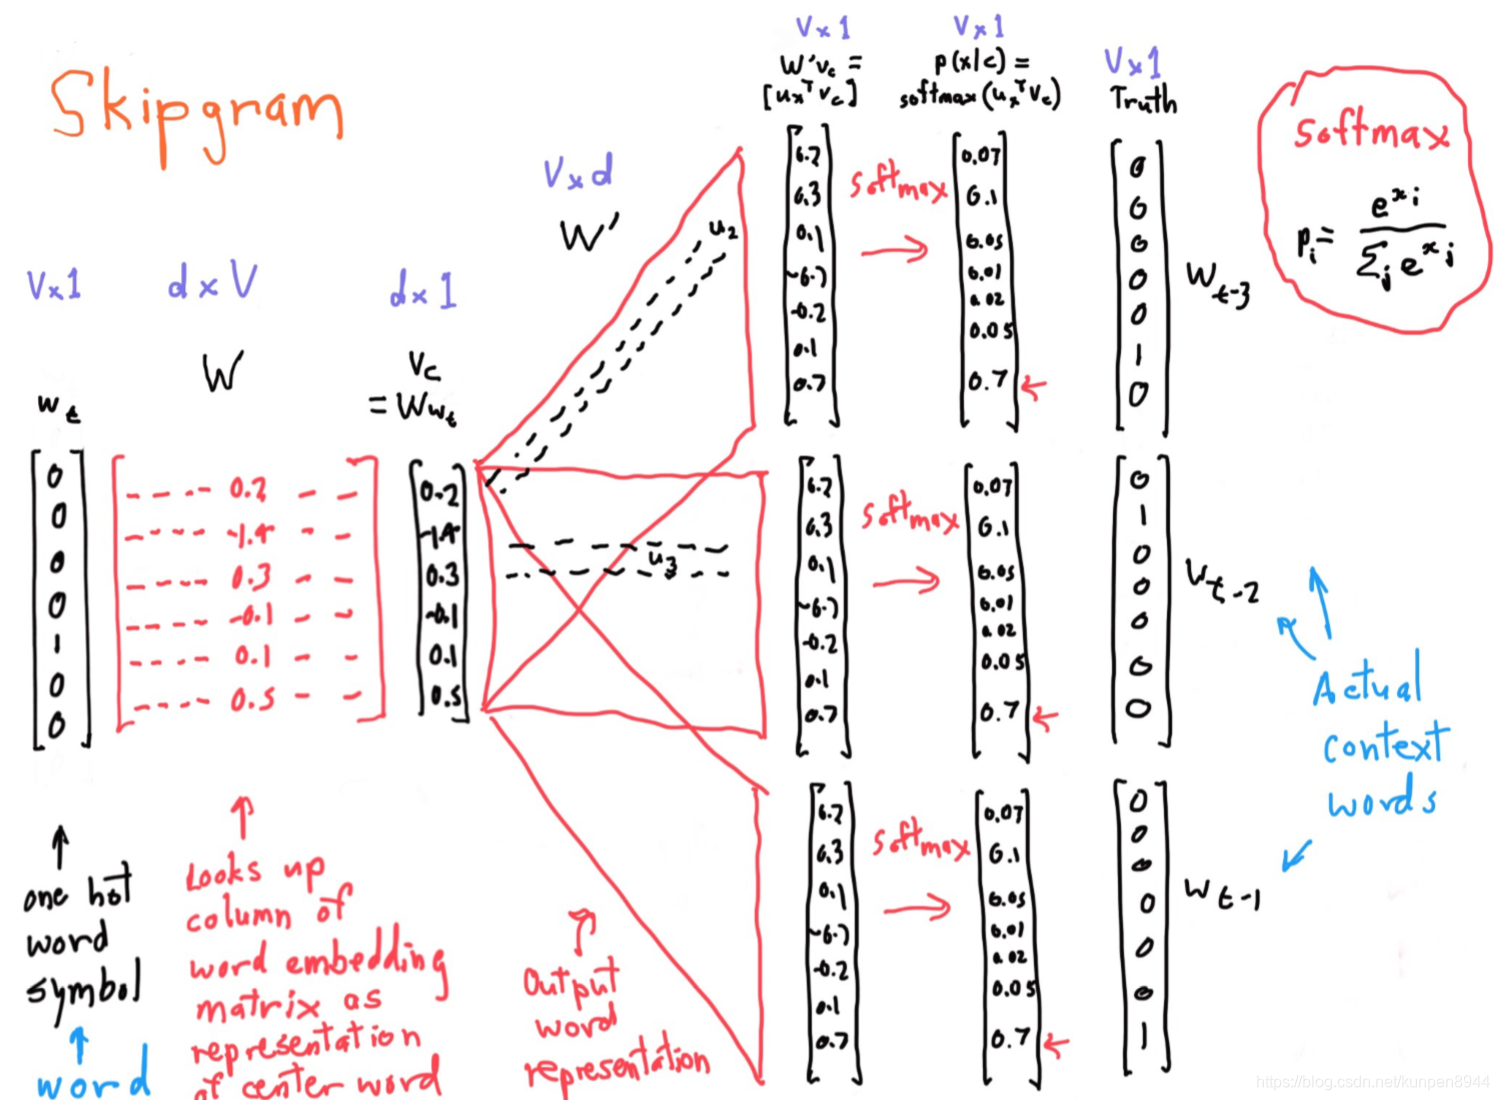 Skipgram
V×1
d×V
d×1
V×d
V×1
V×1
V×1
w_t
W
v_c
= Ww_t
W'
W'v_c =
[u_x^T v_c]
p(x|c) =
softmax(u_x^T v_c)
Truth
softmax
p_i = e^{x_i} / Σ_j e^{x_j}
0
0
0
0
1
0
0
0.2
-1.4
0.3
-0.1
0.1
0.5
0.2
-1.4
0.3
-0.1
0.1
0.5
u_2
u_3
softmax
0.1
-0.2
0.1
0.7
0.07
0.1
0.05
0.01
0.02
0.05
0.7
0
0
0
0
0
1
0
w_t-3
softmax
0.1
-0.2
0.1
0.7
0.07
0.1
0.05
0.01
0.02
0.05
0.7
0
1
0
0
0
0
0
w_t-2
softmax
0.1
-0.2
0.1
0.7
0.07
0.1
0.05
0.01
0.02
0.05
0.7
0
0
0
0
0
0
1
w_t-1
Actual
context
words
one hot
word
symbol
word
Looks up
column of
word embedding
matrix as
representation
of center word
Output
word
representation
https://blog.csdn.net/kunpen8944